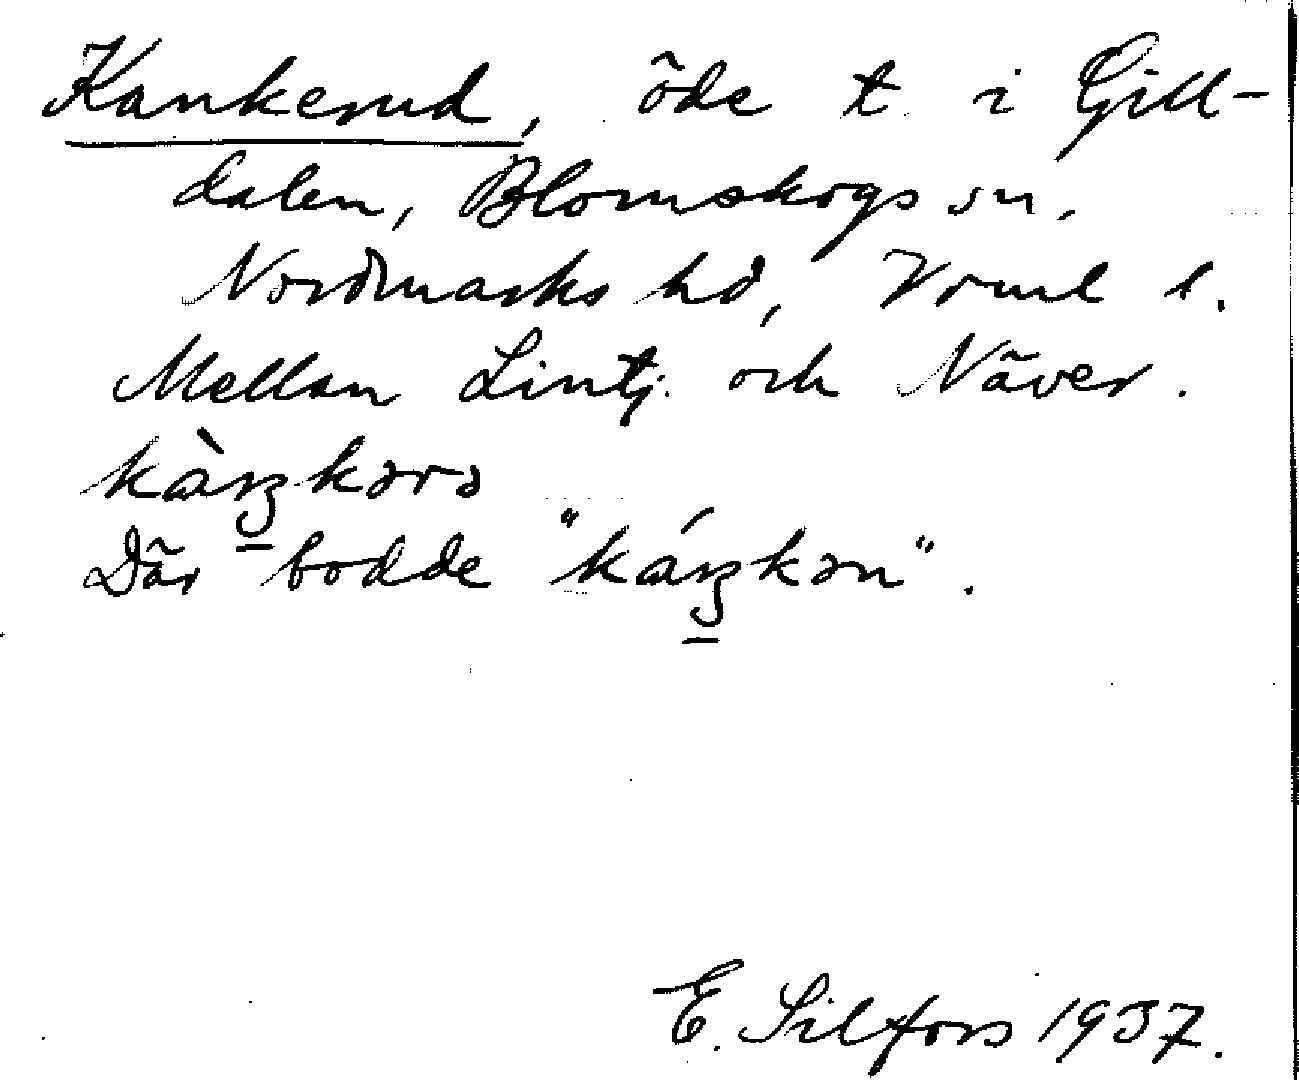 Kankerud, öde t. i Gill-
dalen, Blomskogs sn.
Nordmarks hd, Vrml l.
Mellan Lintj. och Näver.
kàŋkərə
Där bodde "káŋkən".
E. Silfors 1937.